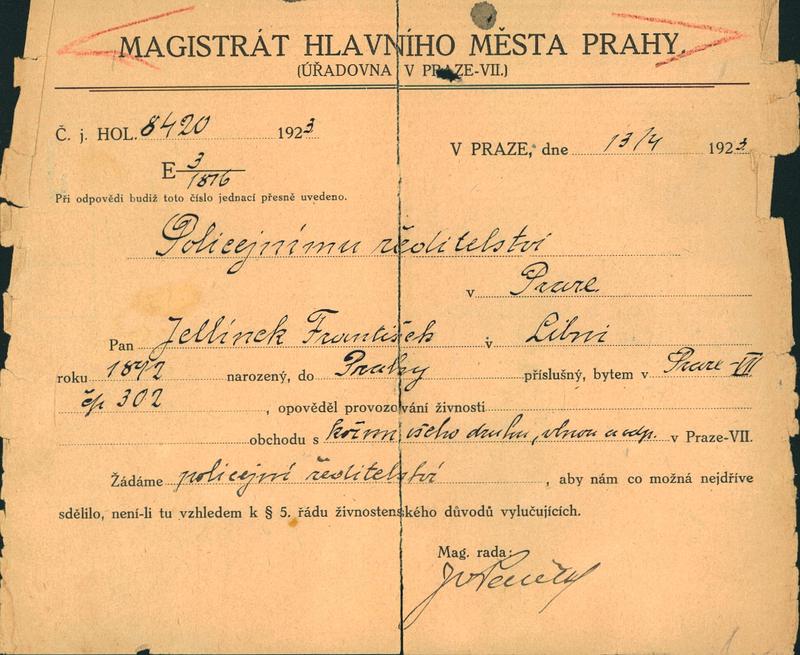 MAGISTRÁT HLAVNÍHO MĚSTA PRAHY.
(ÚŘADOVNA V PRAZE-VII.)
Č. j. HOL. 8420 1923
V PRAZE, dne 13/4 1923
E 3/1876
Při odpovědi budiž toto číslo jednací přesně uvedeno.
Policejnímu ředitelství
v Praze
Pan Jellínek František v Libni
roku 1872 narozený, do Prahy příslušný, bytem v Praze-VII
čp 302, opověděl provozování živnosti
obchodu s kožmi všeho druhu, vlnou a odp. v Praze-VII.
Žádáme policejní ředitelství, aby nám co možná nejdříve
sdělilo, není-li tu vzhledem k § 5. řádu živnostenského důvodů vylučujících.
Mag. rada: